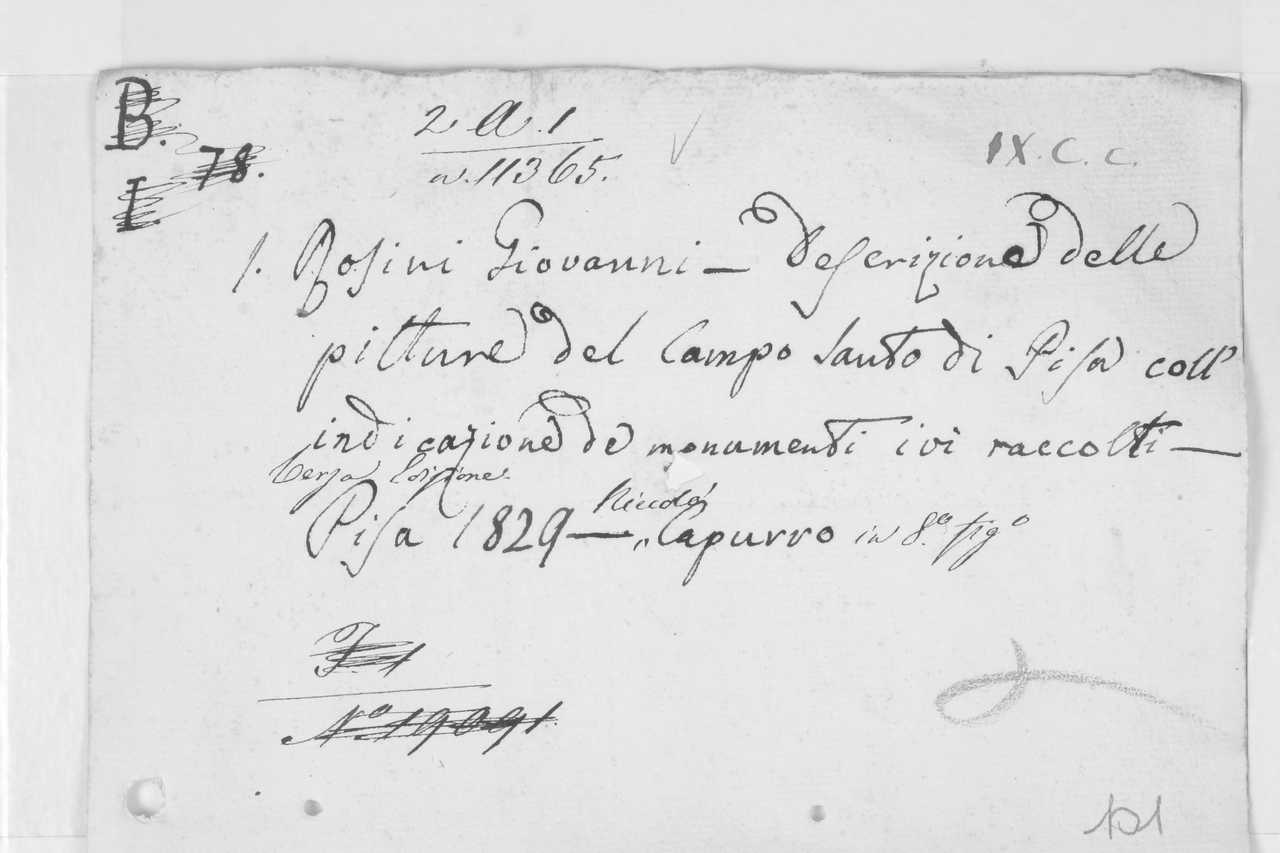 B.
78.
I.
2 A. 1
n. 11365.
IX. C. c.
1. Rosini Giovanni — Descrizione delle
pitture del Campo Santo di Pisa coll'
indicazione de monumenti ivi raccolti —
Terza Edizione.
Pisa 1829 — Niccolò Capurro in 8.º fig.º
N.º 19091